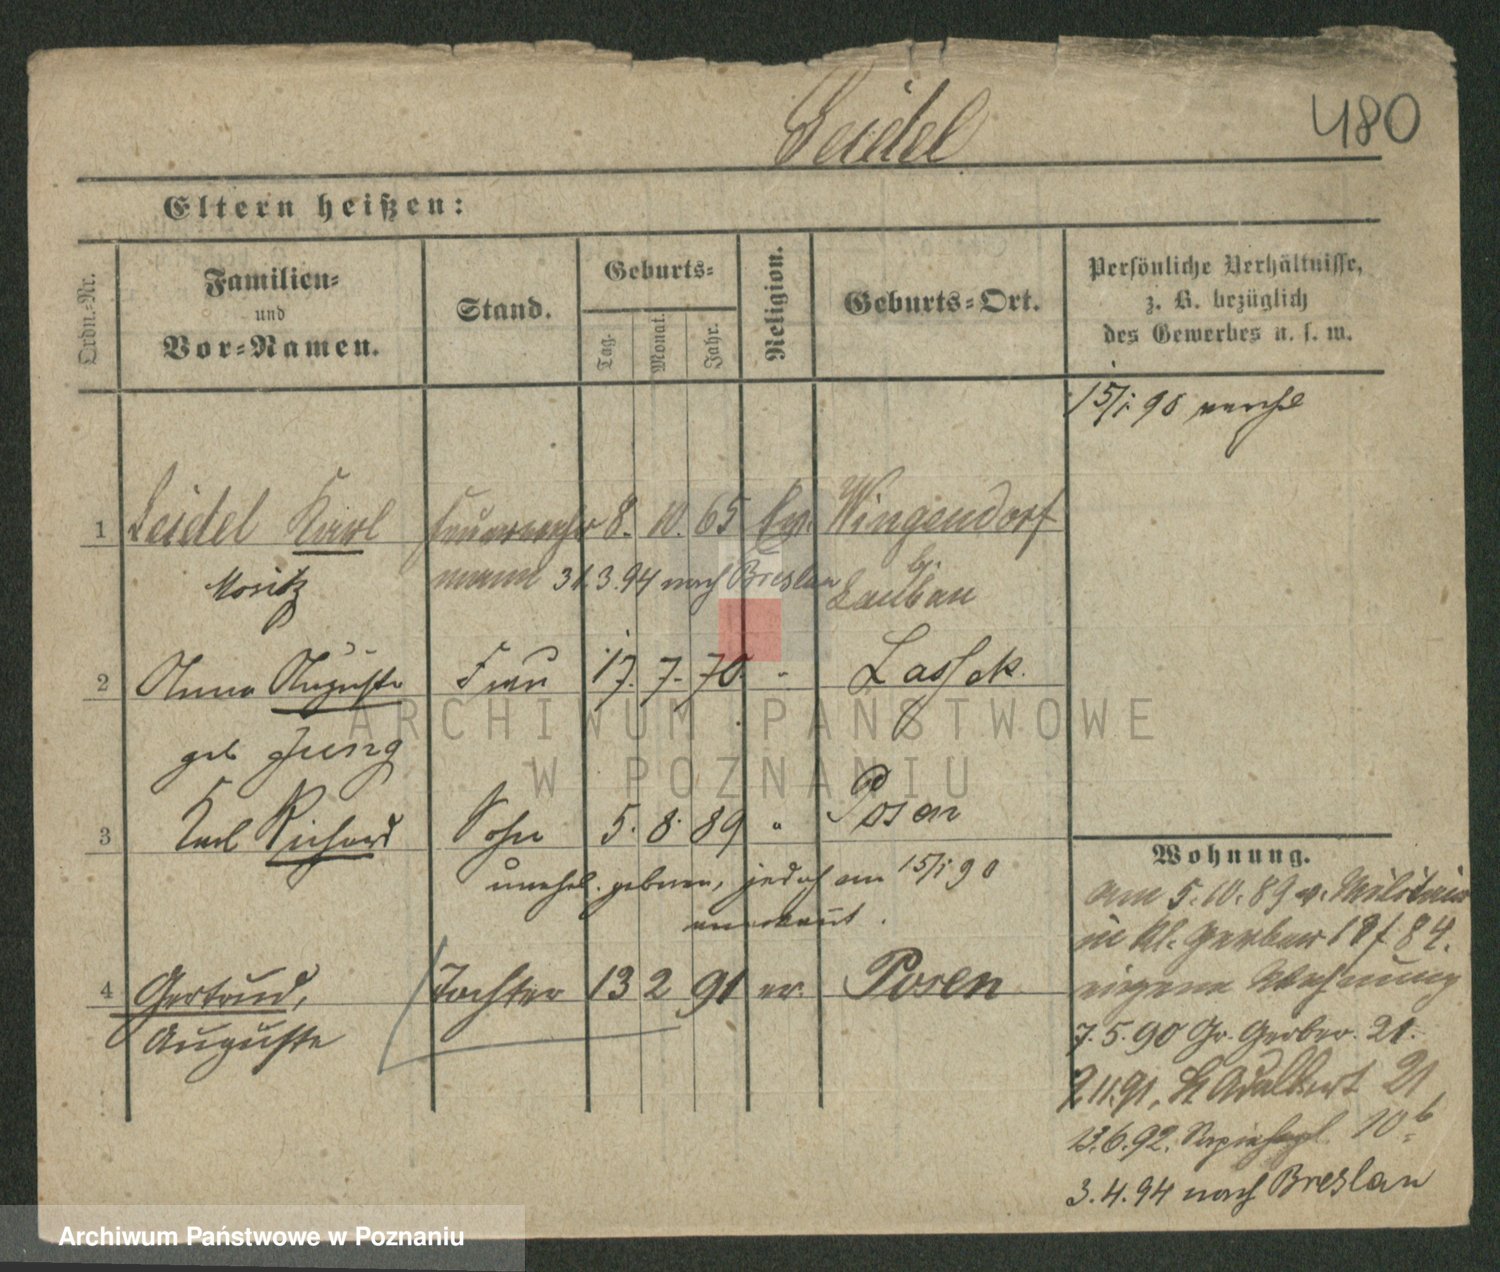 Seidel
480
Eltern heißen:
Ordn.-Nr.
Familien-
und
Vor-Namen.
Stand.
Geburts-
Tag.
Monat.
Jahr.
Religion.
Geburts-Ort.
Persönliche Verhältnisse,
z. B. bezüglich
des Gewerbes u. s. w.
15/1. 90 verehl
1 Seidel Karl Feuerwehr 8. 10. 65 Ev. Wingendorf
Moritz mann 31.3.94 nach Breslau b. Lauban
2 Anna Auguste Frau 17. 7. 70. " Lassek.
geb Jung
3 Karl Richard Sohn 5. 8. 89 " Posen
unehel. geboren, jedoch am 15/1 90
anerkannt.
4 Gertrud, Tochter 13 2 91 ev. Posen
Auguste
Wohnung.
am 5.10.89 v. Militair
in Kl. Gerber
eigene Wohnung
7.5.90 Gr. Gerber. 21.
2.11.91, St Adalbert 21
13.6.92. 10b
3.4.94 nach Breslau
ARCHIWUM PAŃSTWOWE
W POZNANIU
Archiwum Państwowe w Poznaniu